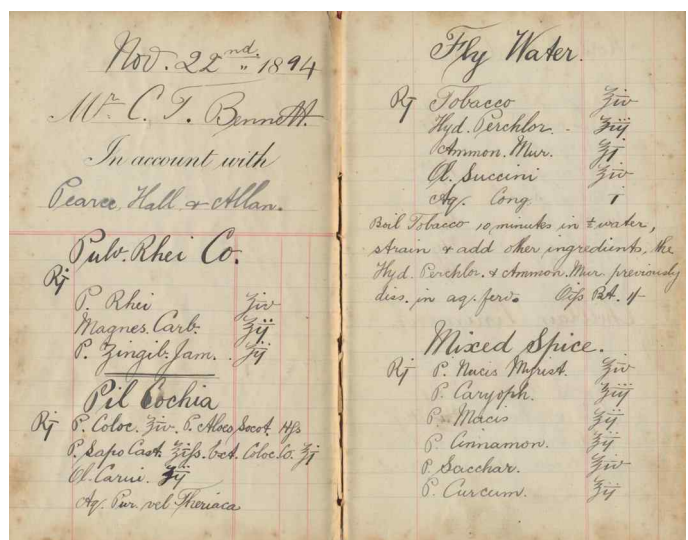 Nov. 22nd. 1894
Mr. C. T. Bennett.
In account with
Pearce, Hall & Allan.
Pulv. Rhei Co.
℞
P. Rhei ℥iv
Magnes. Carb. ℥ij
P. Zingib. Jam. ℥ij
Pil Cochia
℞ P. Coloc. ℥iv. P. Aloes Socot. ℔ss
P. Sapo Cast. Ext. Coloc. Co. ℥j
Ol. Carui. ʒij
Aq. Pur. vel Theriaca
Fly Water.
℞ Tobacco ℥iv
Hyd. Perchlor.
Ammon. Mur.
Ol. Succini ʒiv
Aq. Cong i
Boil Tobacco 10 minutes in water,
strain & add other ingredients, the
Hyd. Perchlor. & Ammon. Mur. previously
diss. in aq. ferv. Oiſs Bt. 1/-
Mixed Spice.
℞ P. Nucis Myrist. ℥iv
P. Caryoph. ℥iij
P. Macis ℥ij
P. Cinnamon. ℥ij
P. Sacchar. ℥iv
P. Curcum. ℥ij